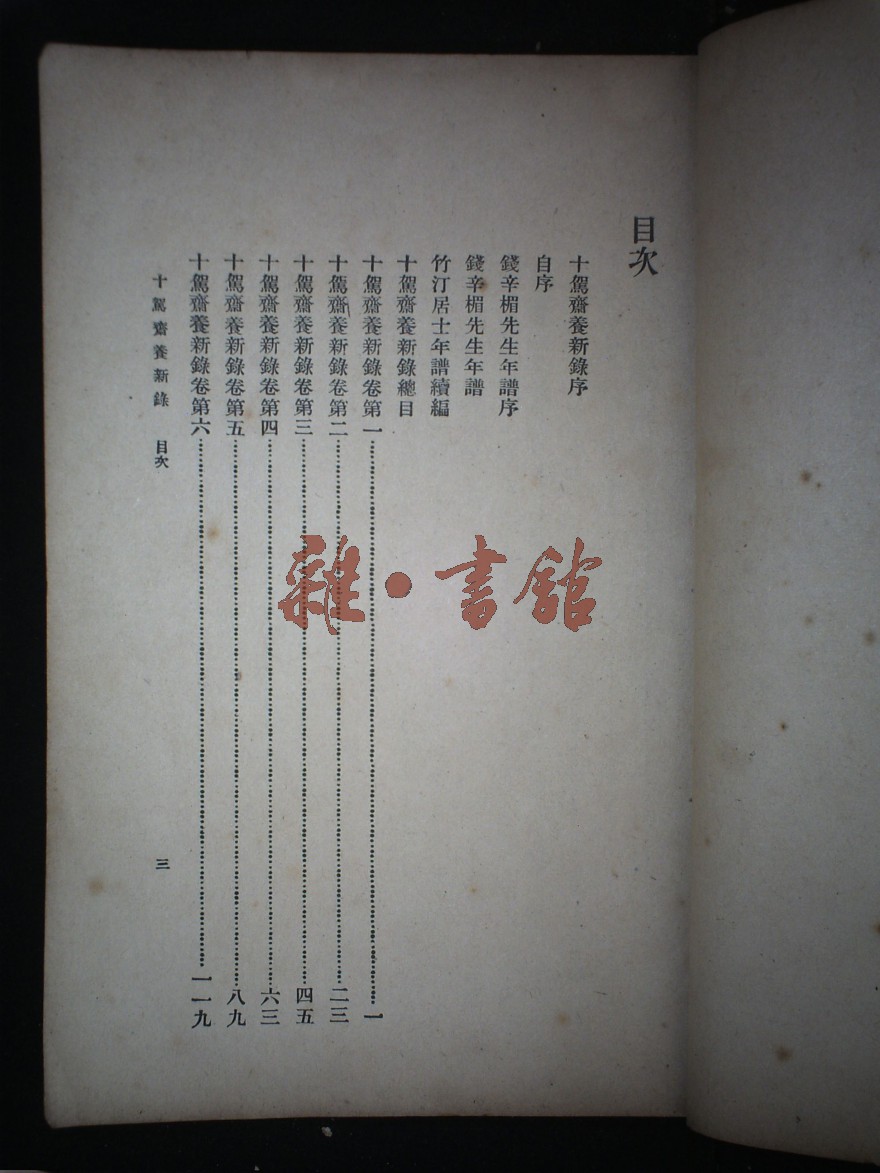 目次
十駕齋養新錄序
自序
錢辛楣先生年譜序
錢辛楣先生年譜
竹汀居士年譜續編
十駕齋養新錄總目
十駕齋養新錄卷第一……一
十駕齋養新錄卷第二……二三
十駕齋養新錄卷第三……四五
十駕齋養新錄卷第四……六三
十駕齋養新錄卷第五……八九
十駕齋養新錄卷第六……一一九
十駕齋養新錄 目次 三
雜·書館